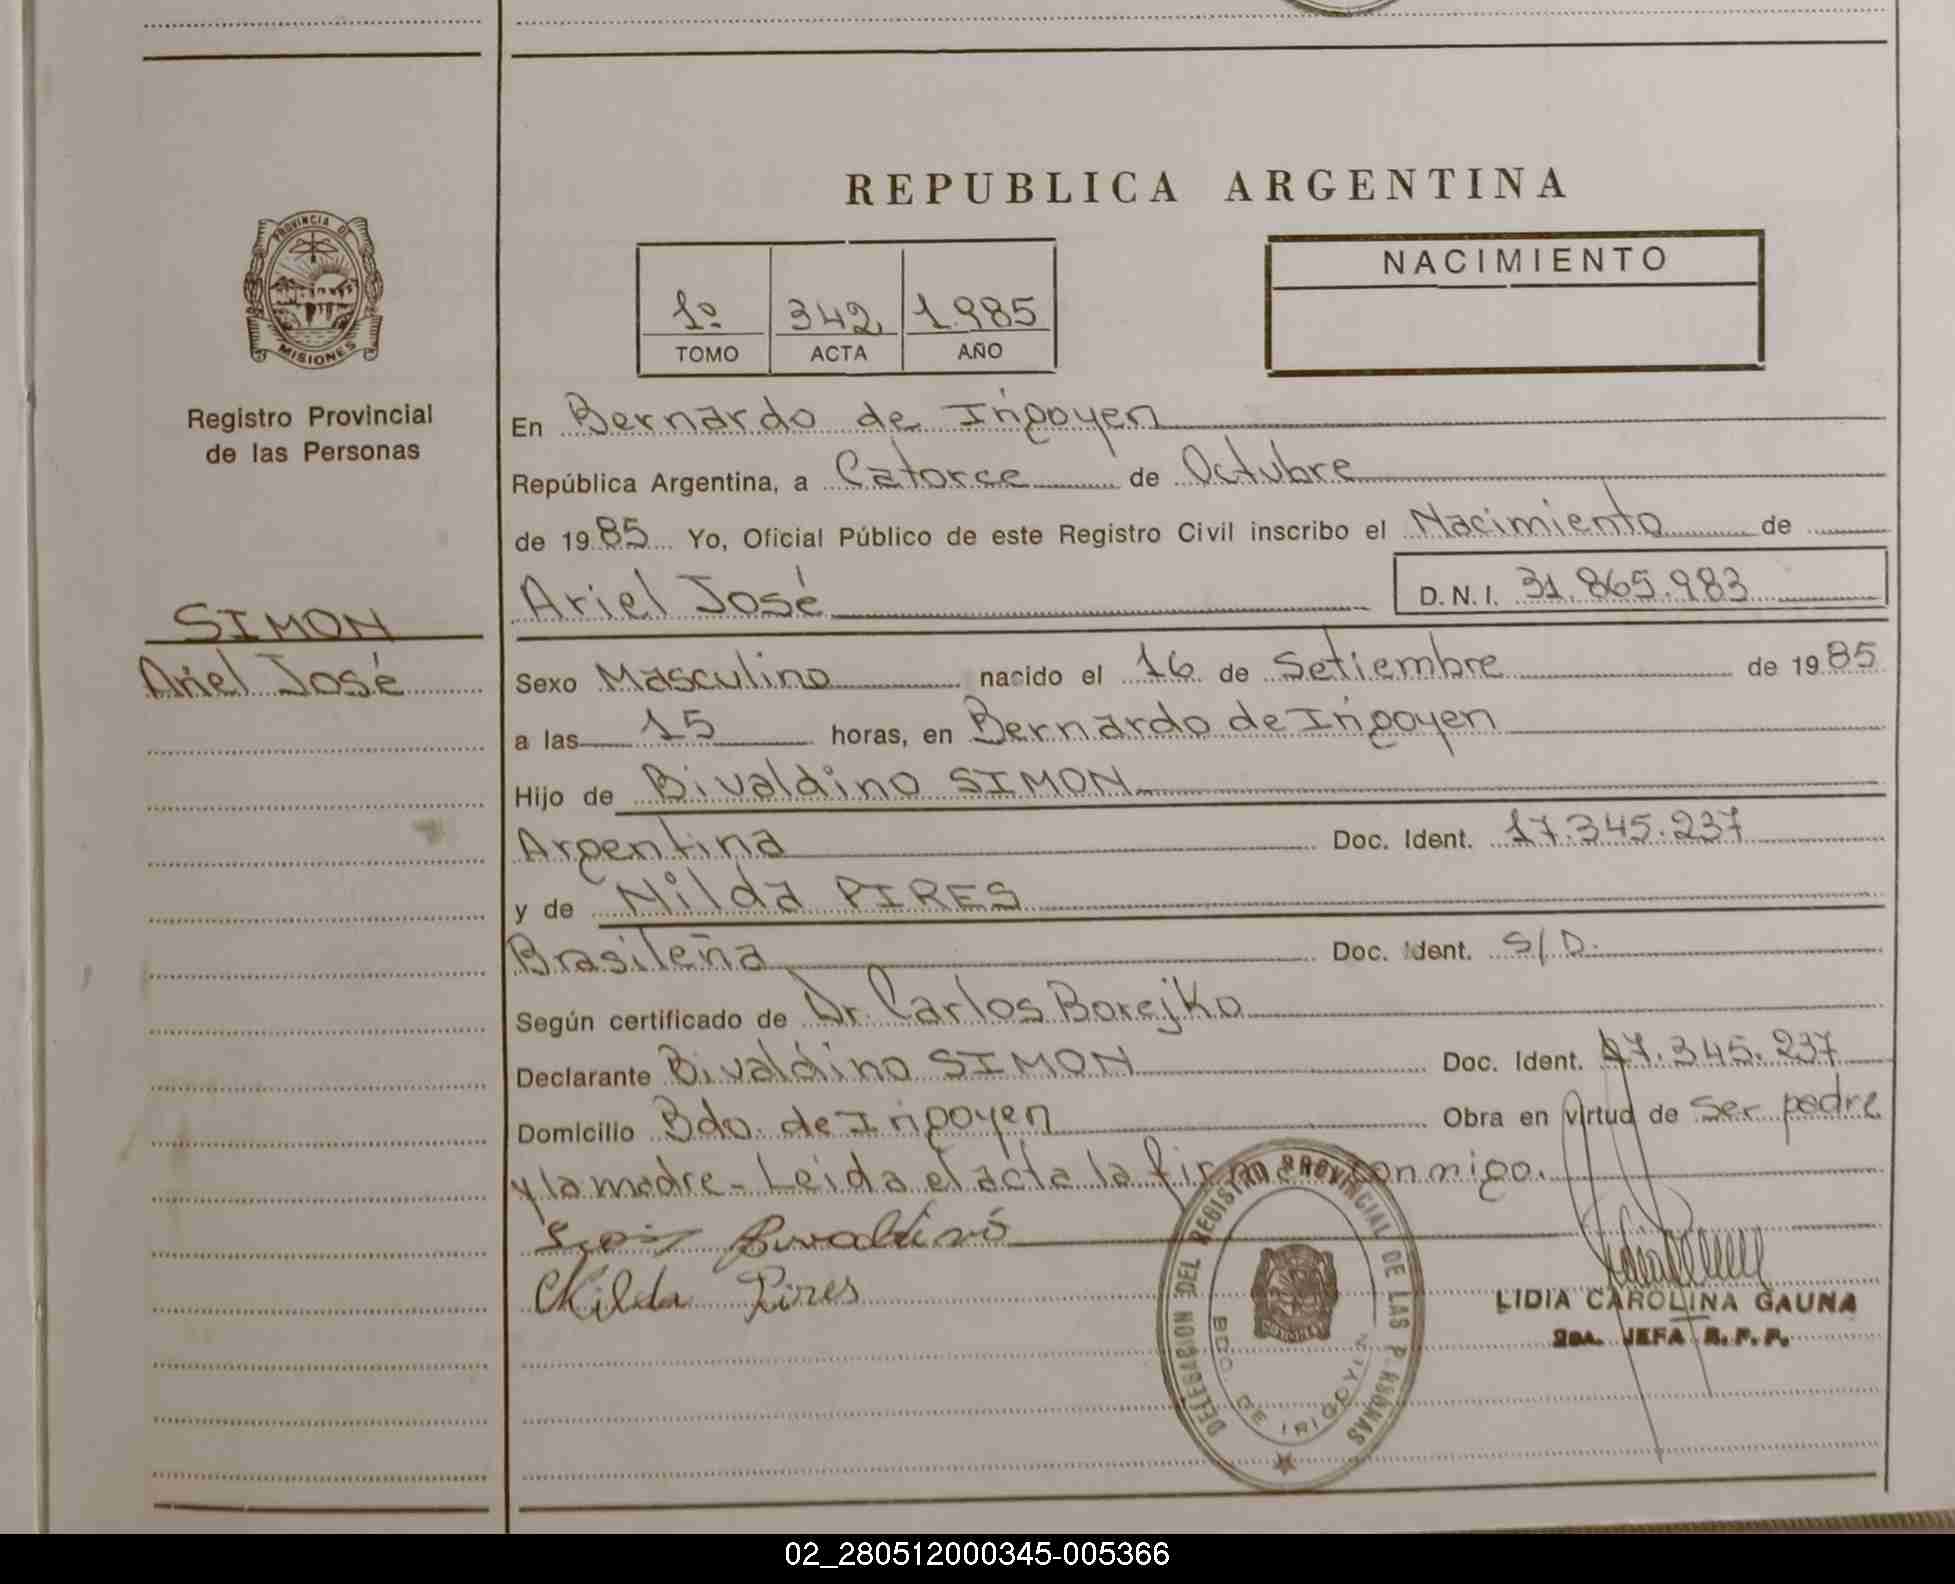 REPUBLICA ARGENTINA
PROVINCIA DE
MISIONES
Registro Provincial
de las Personas
1º 342 1.985
TOMO ACTA AÑO
NACIMIENTO
En Bernardo de Irigoyen
República Argentina, a Catorce de Octubre
de 1985 Yo, Oficial Público de este Registro Civil inscribo el Nacimiento de
Ariel José D.N.I. 31.865.983
SIMON
Ariel José
Sexo Masculino nacido el 16 de Setiembre de 1985
a las 15 horas, en Bernardo de Irigoyen
Hijo de Bivaldino SIMON
Argentina Doc. Ident. 17.345.237
y de Nilda PIRES
Brasileña Doc. Ident. S/D.
Según certificado de Dr. Carlos Borejko
Declarante Bivaldino SIMON Doc. Ident. 17.345.237
Domicilio Bdo. de Irigoyen Obra en virtud de ser padre
y la madre - Leida el acta la firma conmigo.
Bivaldino
Nilda Pires
DELEGACION DEL REGISTRO PROVINCIAL DE LAS PERSONAS
BDO. DE IRIGOYEN
LIDIA CAROLINA GAUNA
2DA. JEFA R.P.P.
02_280512000345-005366